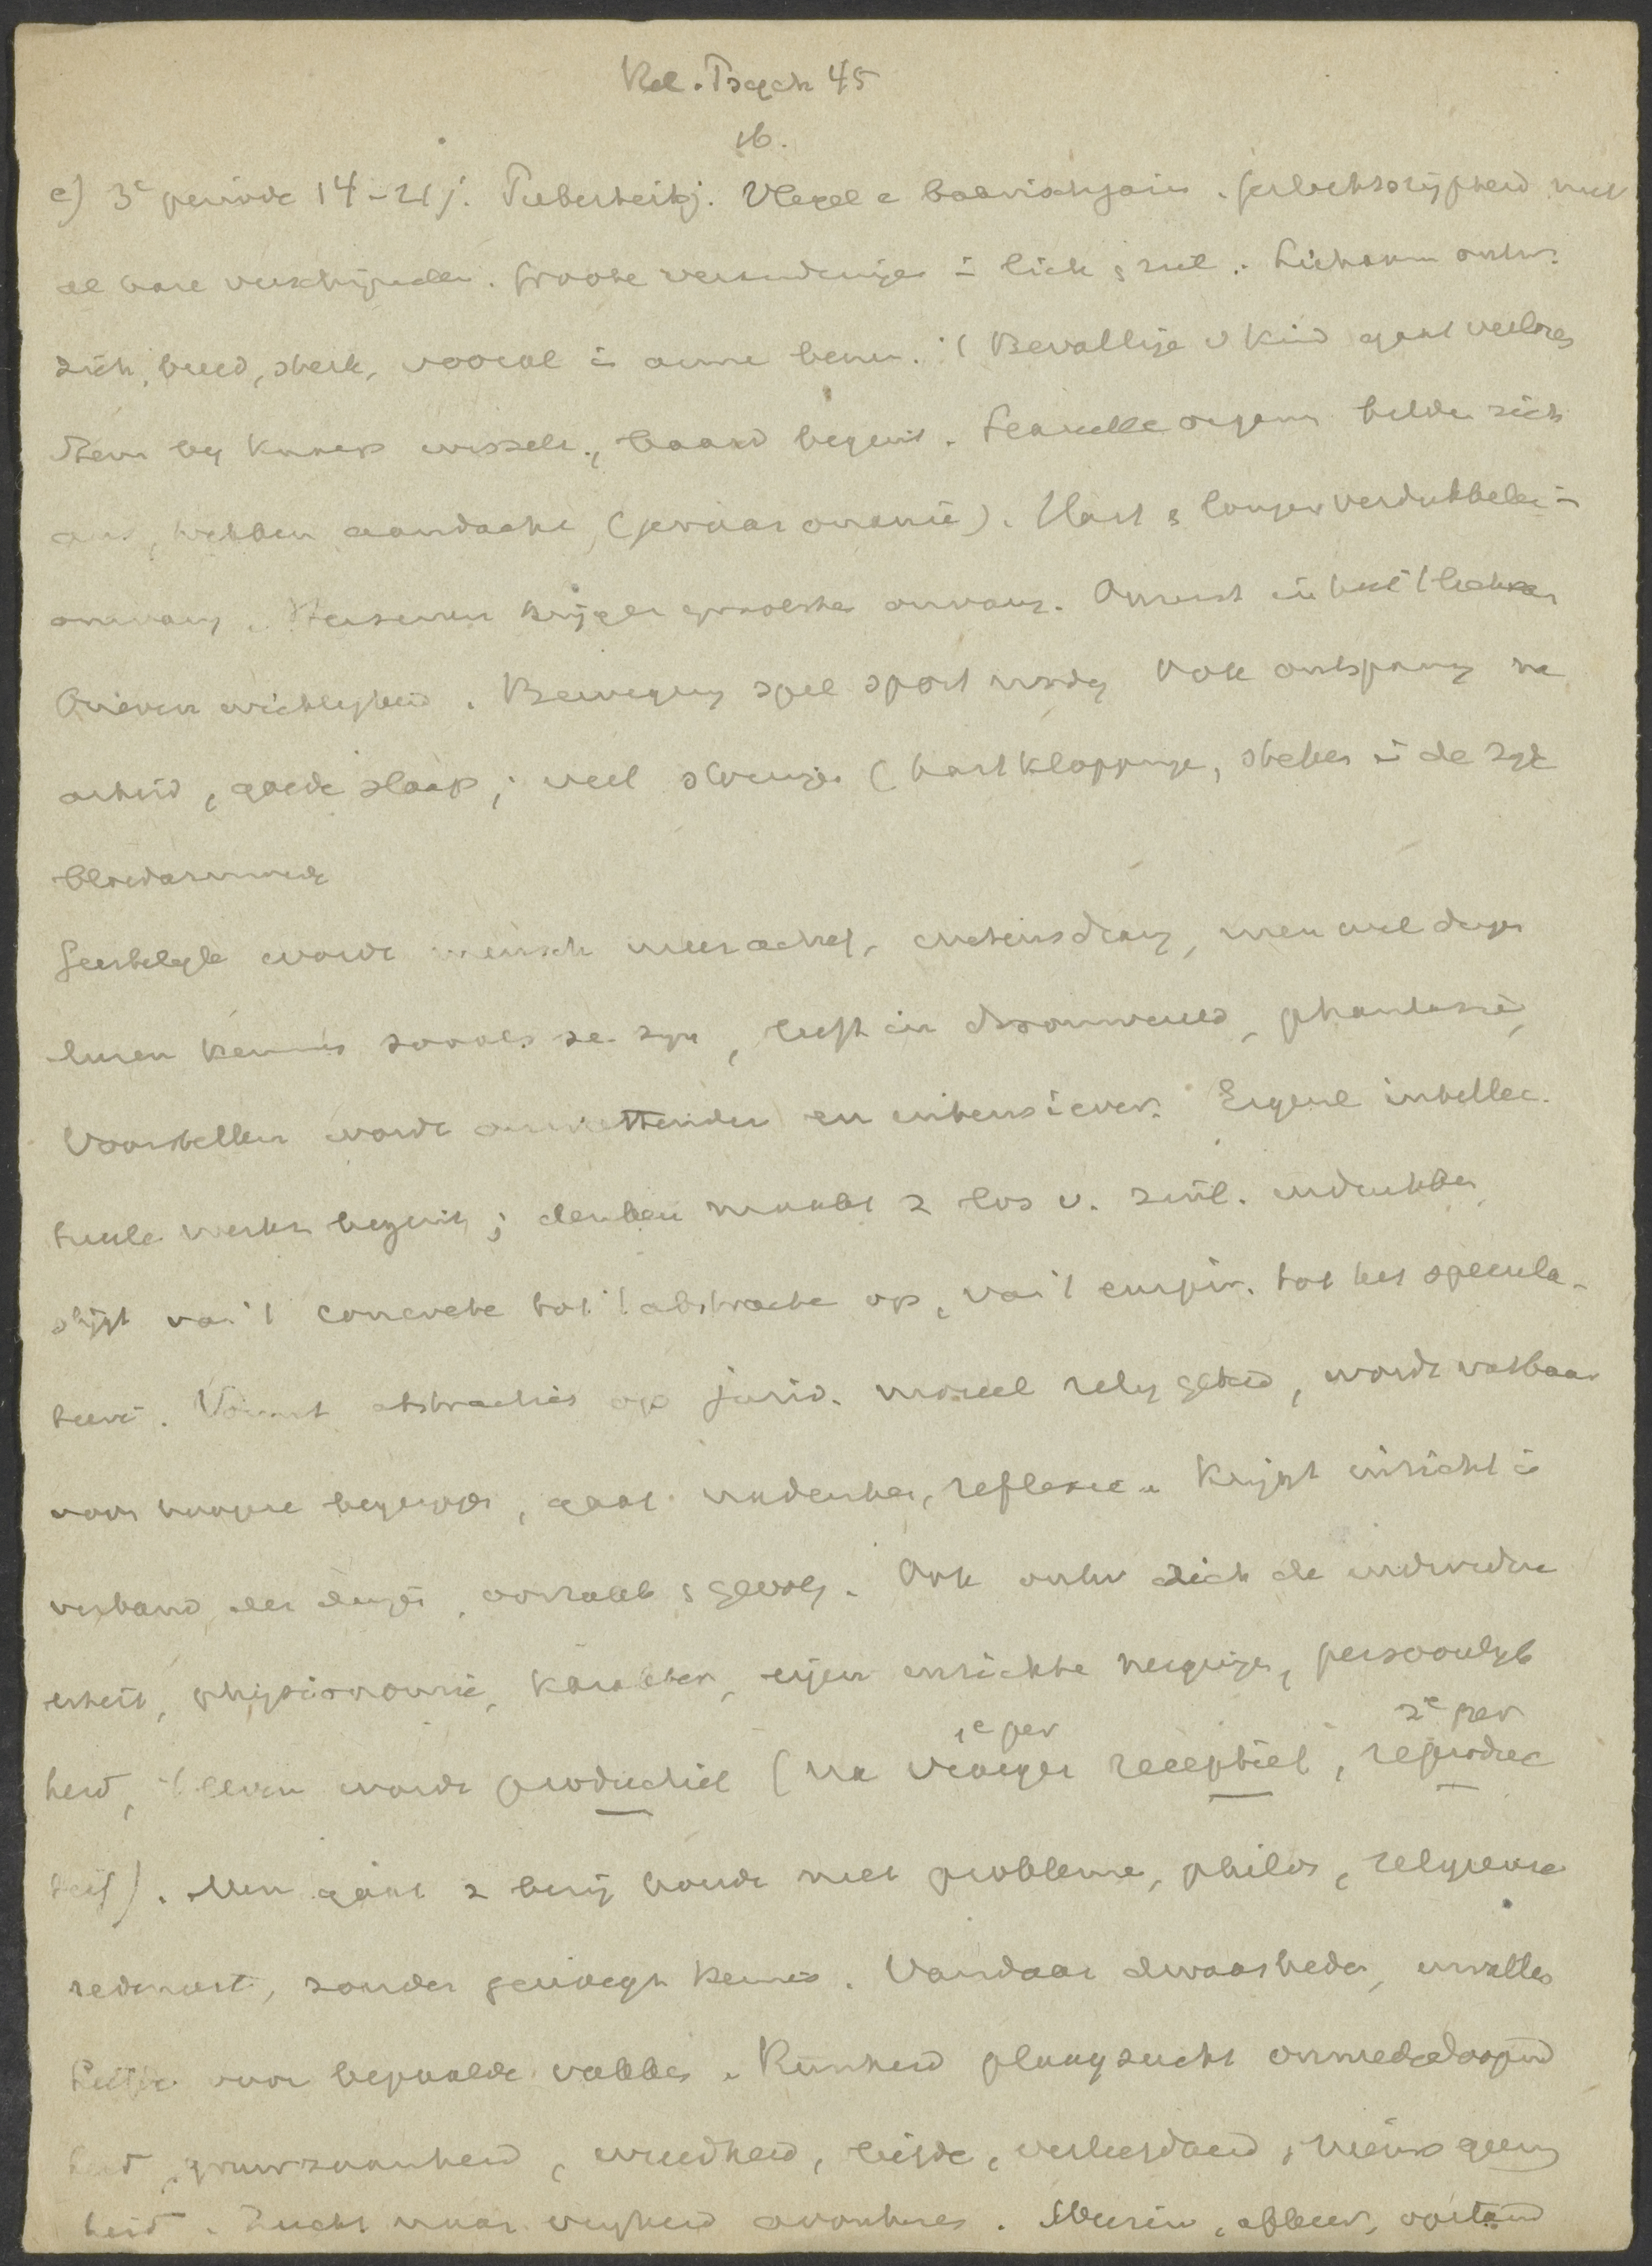 Rel. Psych 45
16.
c) 3e periode 14-21 j. Puberteitsj. Vlegel e bakvischjaren. geslachtsrijpheid met
al hare verschijnselen. Groote veranderingen in lich & ziel. Lichaam ontw.
zich, breed, sterk, vooral in arme beenen. Bevallige v kind gaat verlores
Stem bij knaap wisselt, baard begint. Sexuelle organen belden zich
aan, trekken aandacht, (gevaar onanie). Hart & longen verdubbelen in
omvang. Hersenen krijgen grootste omvang. Onrust in
onevenwichtigheid. Beweging spel sport nodig Ook ontspanng na
arbeid, goede slaap; veel storingen (hartkloppinge, steken in de zyde
bloedarmoede
Geestelyk wordt mensch meer actief, wetensdrang, men wil dingen
leeren kennen zooals ze zyn, leeft in droomwereld, phantasie,
Voorstellen wordt omvattender en intensiever. Eigenl intellec-
tueele werken begint; denken maakt z los v. zinl. indrukken
stijgt van 't concrete tot 't abstracte op, van 't empir. tot het specula-
tieve. Vormt abstracties op jurid. moreel relig gebied, wordt vatbaar
voor hoogere begrippen, gaat nadenken, reflexie. Krijgt inzicht in
verband der dingen, oorzaak & gevolg. Ook ontw zich de individu
aliteit, physionomie, karakter, eigen inzichte neigingen, persoonlyk
1e per 2e per
heid, 't leven wordt productief (na vroeger receptief, reproduc
tief). Men gaat z bezig houde met probleme, philos, religieuze
redeneert, zonder genoegz kennis. Vandaar dwaasheden,
voor bepaalde vakken. Ruwheid plaagzucht onmededoogend
heid, gruwzaamheid, wreedheid, liefde, verliefdheid,
heid. Zucht naar vryheid avonturen.